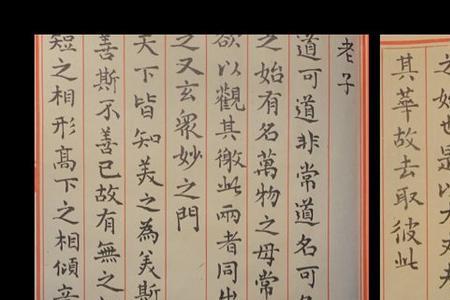 也是以大丈夫
其華故去取彼此
老子
道可道非常道名可名
之始有名萬物之母常
欲以觀其徼此兩者同出
之又玄眾妙之門
天下皆知美之為美斯
善斯不善已故有無之
短之相形高下之相傾音